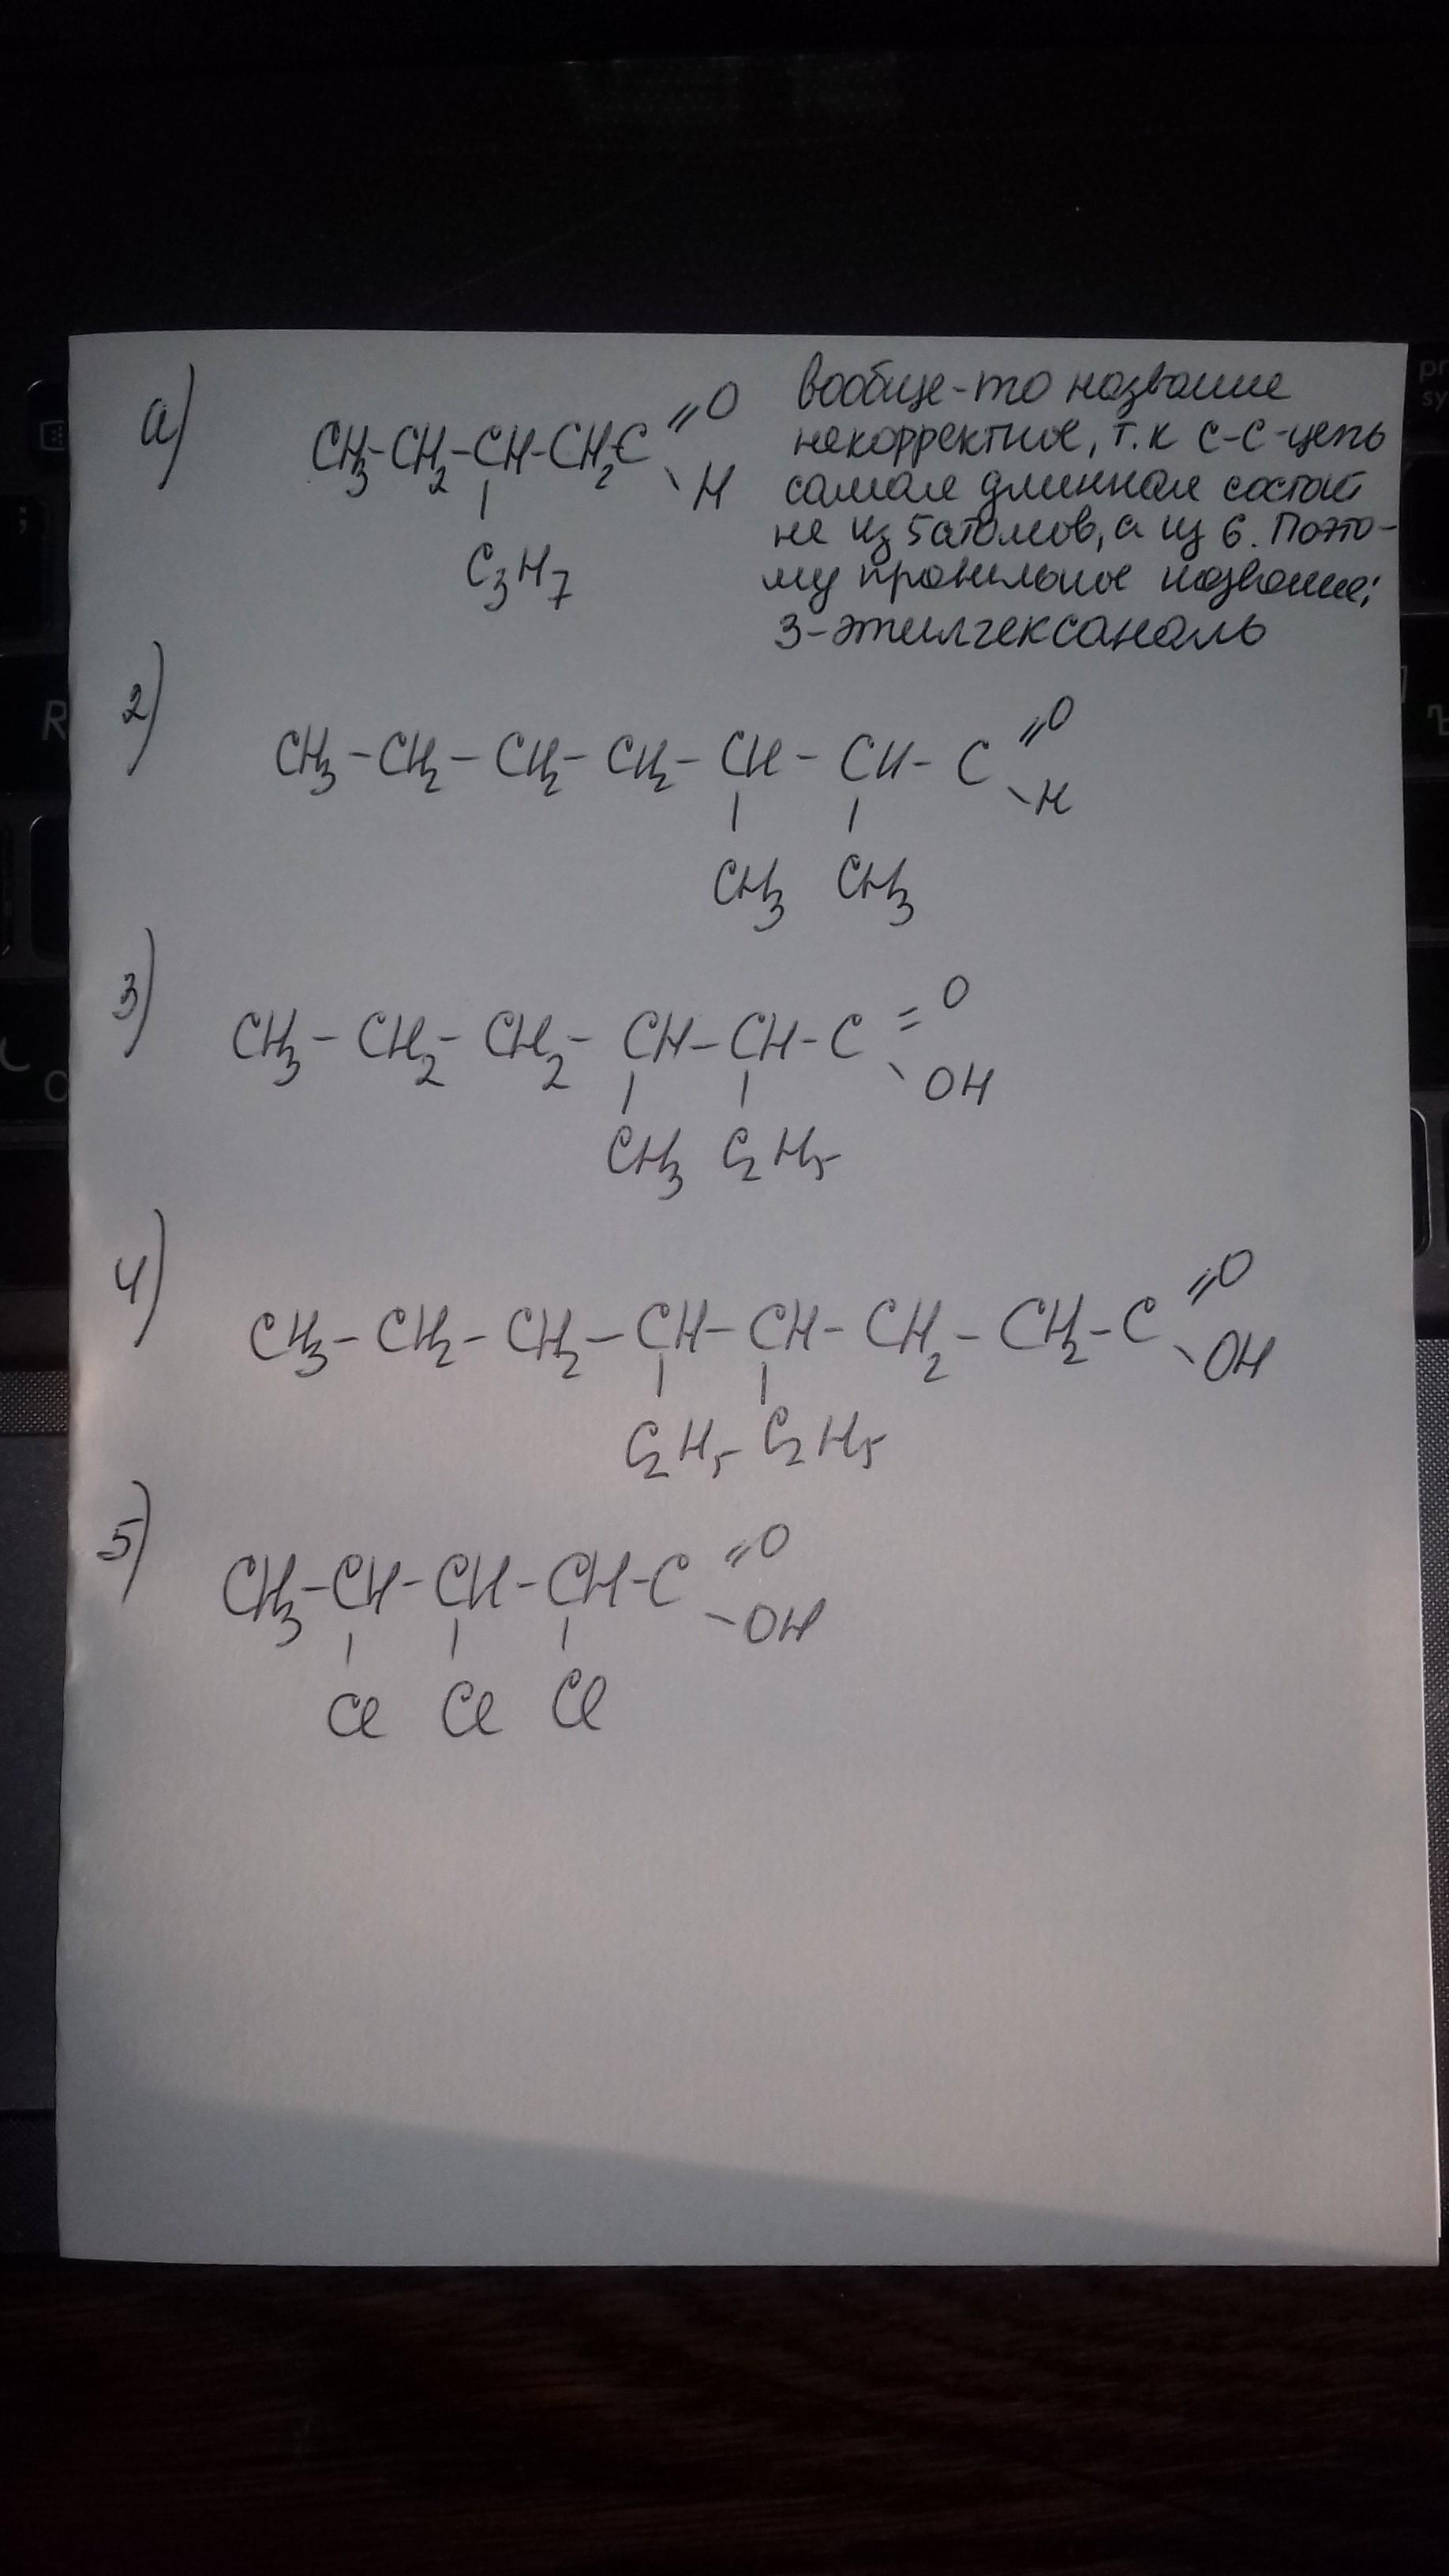 а)
CH3-CH2-CH-CH2C=O
-H
C3H7
вообще-то название
некорректное, т.к C-C-цепь
самая длинная состоит
не из 5 атомов, а из 6. Поэто-
му правильное название:
3-этилгексаналь
2)
CH3-CH2-CH2-CH2-CH-CH-C=O
-H
CH3 CH3
3)
CH3-CH2-CH2-CH-CH-C=O
-OH
CH3 C2H5
4)
CH3-CH2-CH2-CH-CH-CH2-CH2-C=O
-OH
C2H5 C2H5
5)
CH3-CH-CH-CH-C=O
-OH
Cl Cl Cl
R